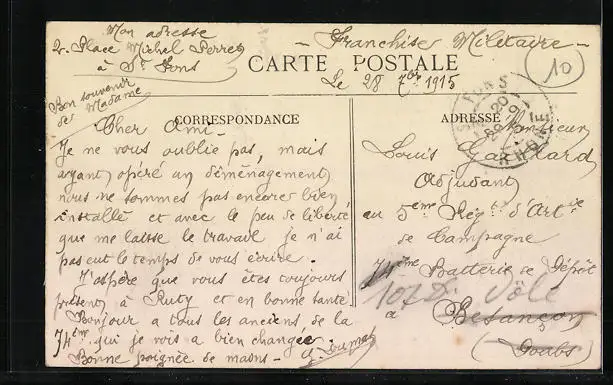 Mon adresse
2. Place Michel Perret
à St Fons
- Franchise Militaire -
10
CARTE POSTALE
Le 28 7bre 1915
Bon souvenir
de Madame
CORRESPONDANCE
ADRESSE
ST FONS
RHONE
Cher Ami -
Je ne vous oublie pas, mais
ayant opéré un déménagement,
nous ne sommes pas encore bien
installé et avec le peu de liberté
que me laisse le travail je n'ai
pas eut le temps de vous écrire.
J'espère que vous êtes toujours
présent, à Ruty et en bonne santé
Bonjour a tous les anciens de la
74ème qui je vois a bien changée
Bonne poignée de mains -
G. Dumas
Monsieur
Louis
Adjudant
au 5ème Régt d'Artie
de Campagne
74ème Batterie de Dépôt
107e Dôle
à Besançon
(Doubs)